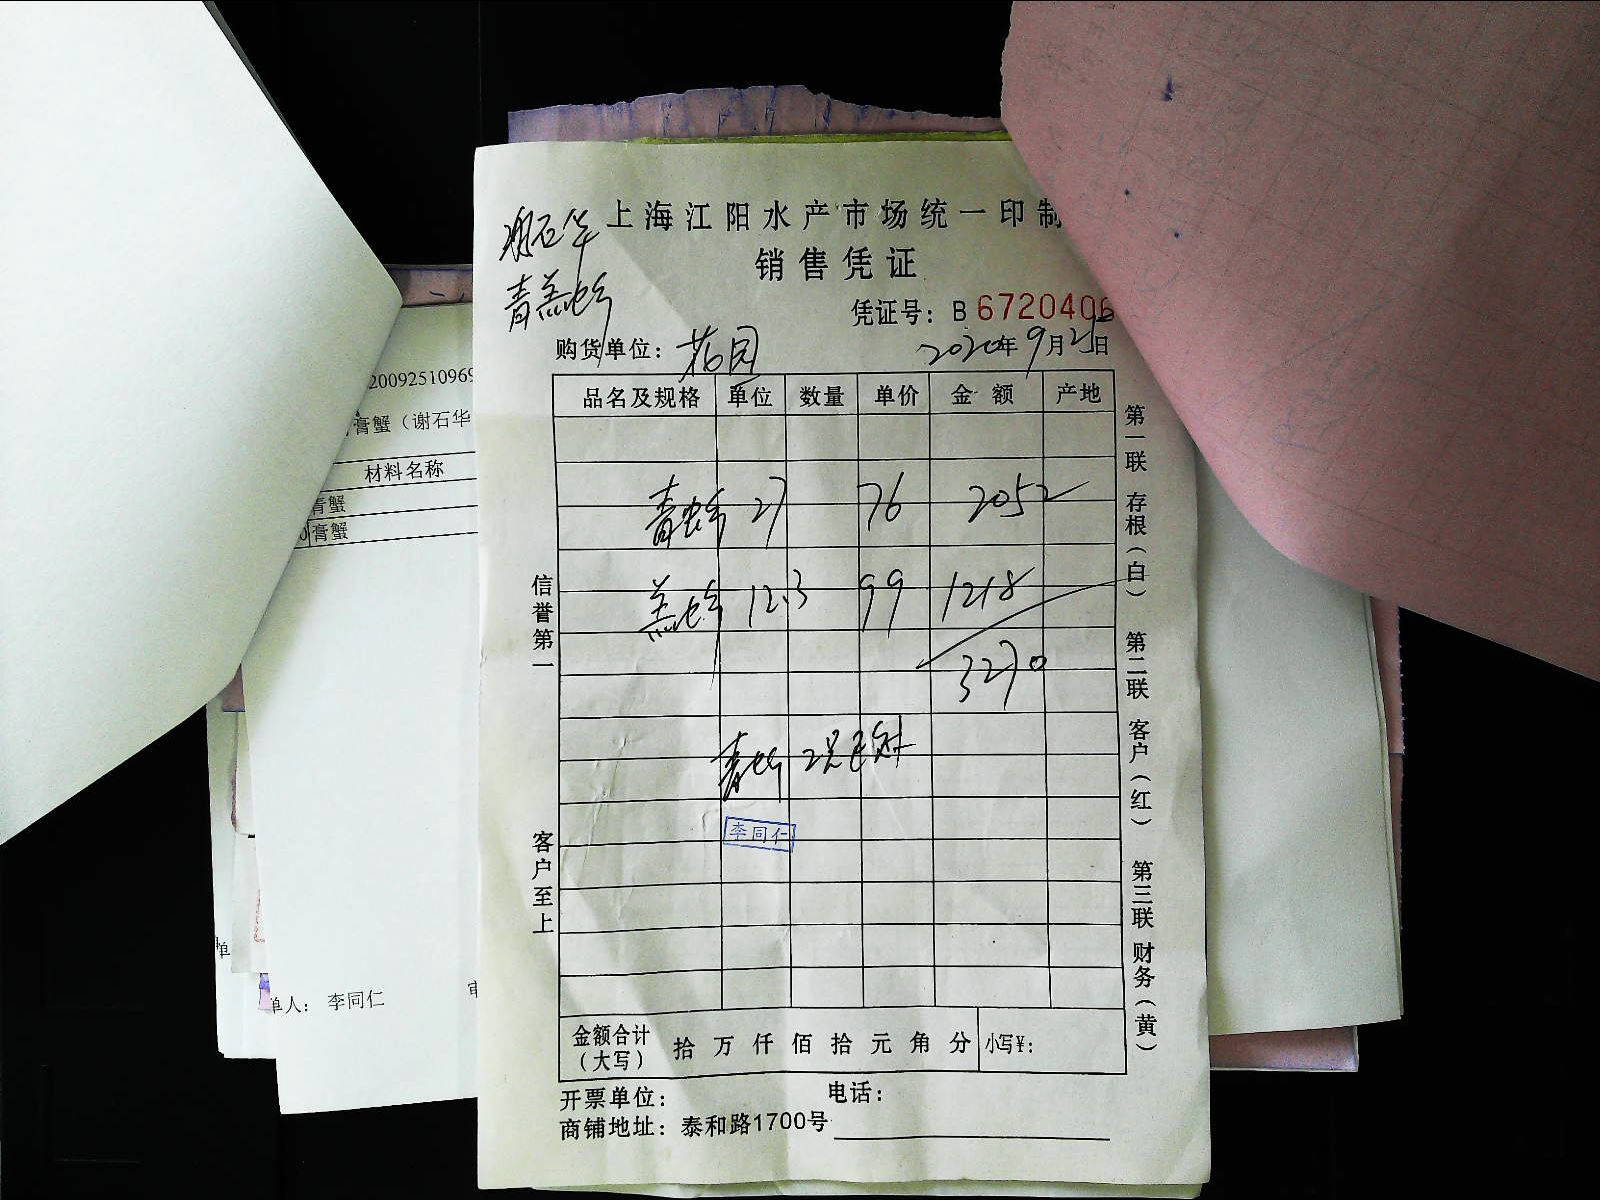 谢石华
青羔蟹
上海江阳水产市场统一印制
销售凭证
凭证号：B 6720406
购货单位：花园
2020年9月25日
品名及规格 单位 数量 单价 金额 产地
青蟹 27 76 2052
羔蟹 12.3 99 1218
3270
青蟹
李同仁
信誉第一
客户至上
第一联 存根（白） 第二联 客户（红） 第三联 财务（黄）
金额合计（大写） 拾 万 仟 佰 拾 元 角 分 小写¥：
开票单位： 电话：
商铺地址：泰和路1700号
20092510969
膏蟹（谢石华
材料名称
青蟹
膏蟹
单
单人：李同仁